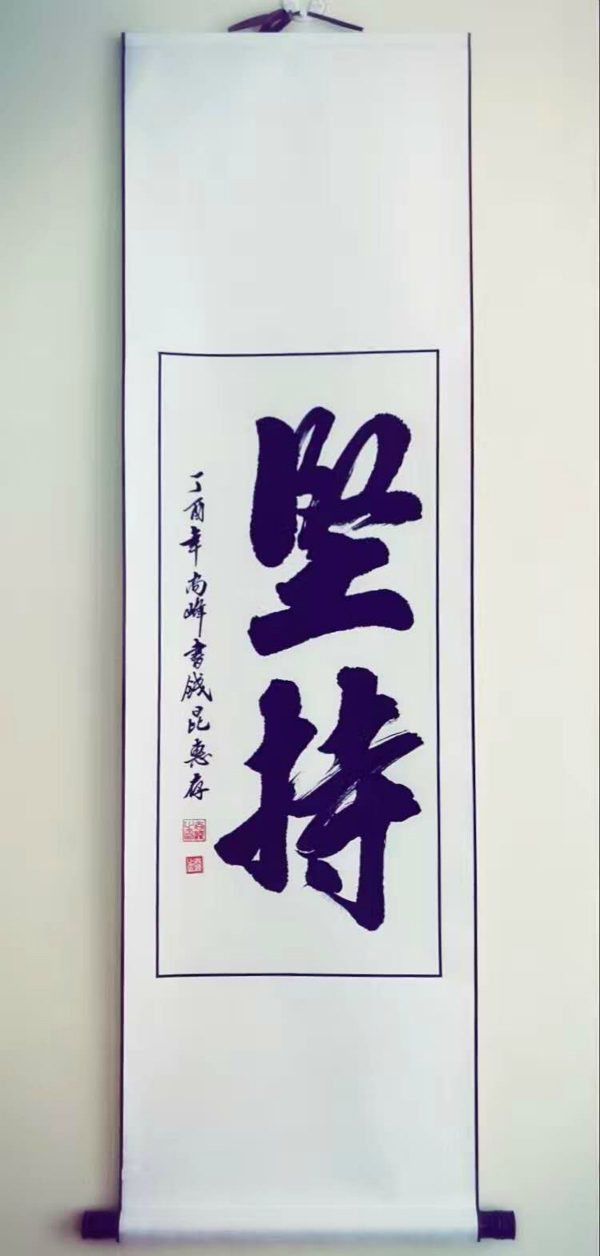 坚持
丁酉年尚峰書钱昆惠存